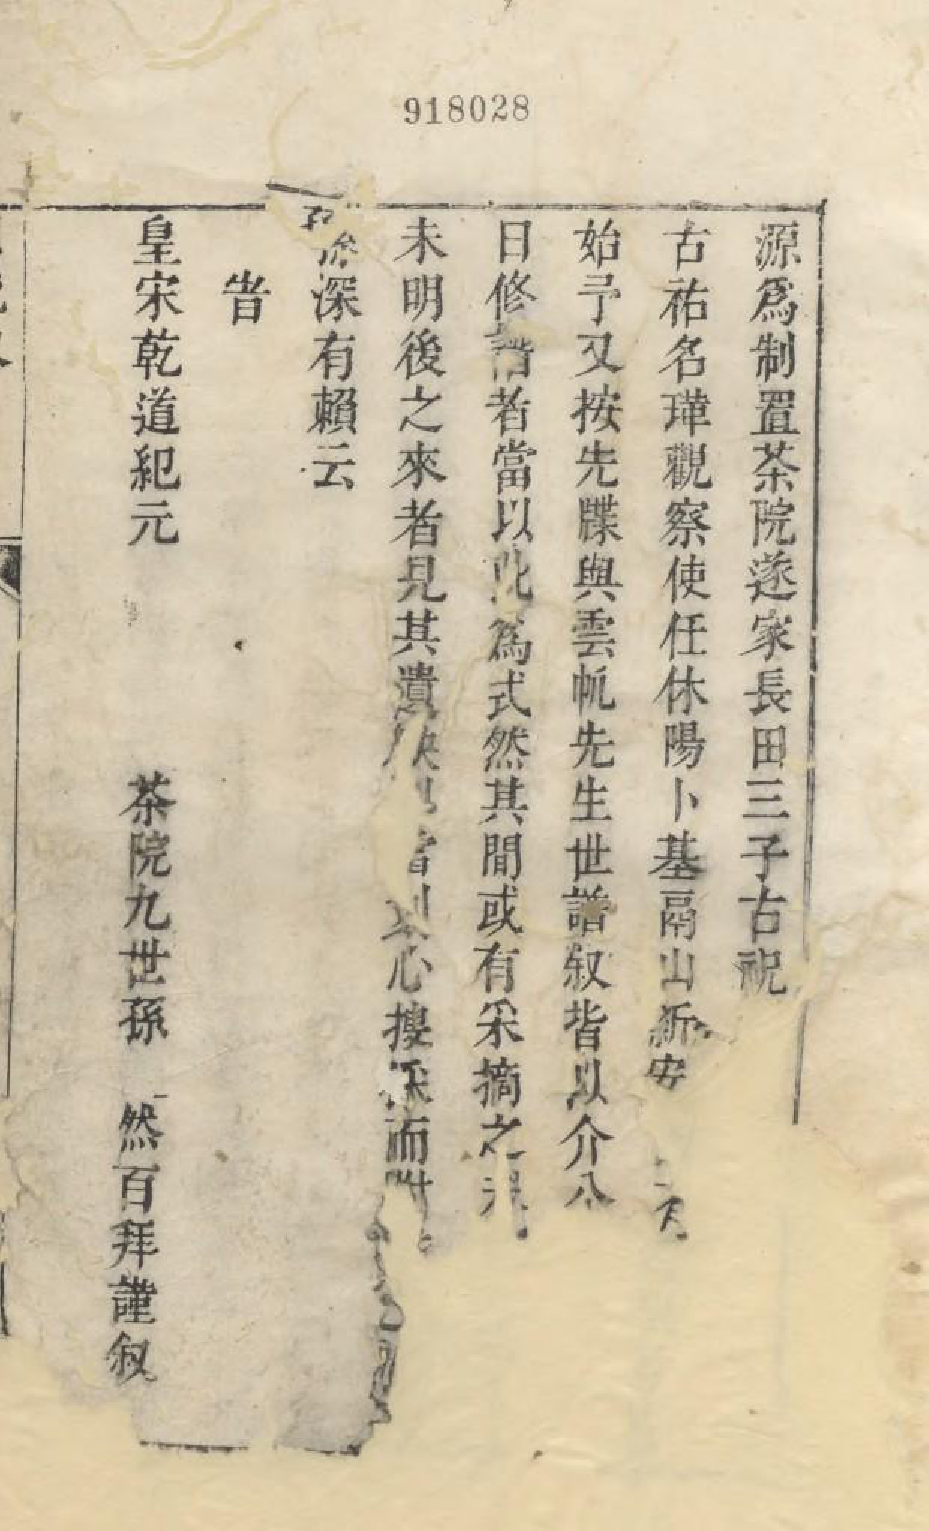 918028
源爲制置茶院遂家長田三子古祝
古祐名瑋觀察使任休陽卜基鬲山新安
始予又按先牒與雲帆先生世譜叙皆以介公
日修譜者當以此爲式然其間或有采摘之
未明後之來者見其遺缺 當刻心搜采而附
深有賴云
旹
皇宋乾道紀元 茶院九世孫 然百拜謹叙